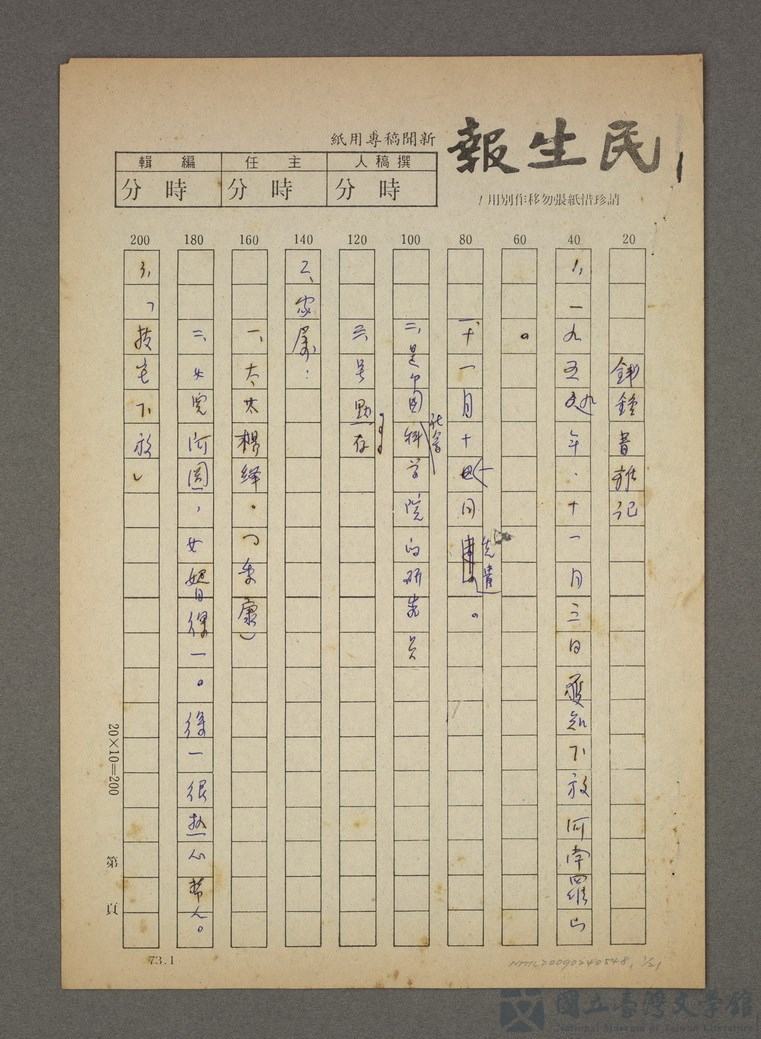 民生報
新聞稿專用紙
請珍惜紙張勿移作別用！
撰稿人 時分
主任 時分
編輯 時分
1
20 40 60 80 100 120 140 160 180 200
錢鍾書雜記
1、一九五九年．十一月三日獲知下放河南羅山
。
一、十一月十一日先遣。
二、是中國社會科学院的研究员
三、號默存
2、家屬：
一、太太楊绛．（季康）
二、女兒阿圓，女婿得一。得一很热心帮人。
3、「技宅下放」
20×10=200
第 頁
73.1
NMTL20090240548, 1/21
國立臺灣文學館
National Museum of Taiwan Literature